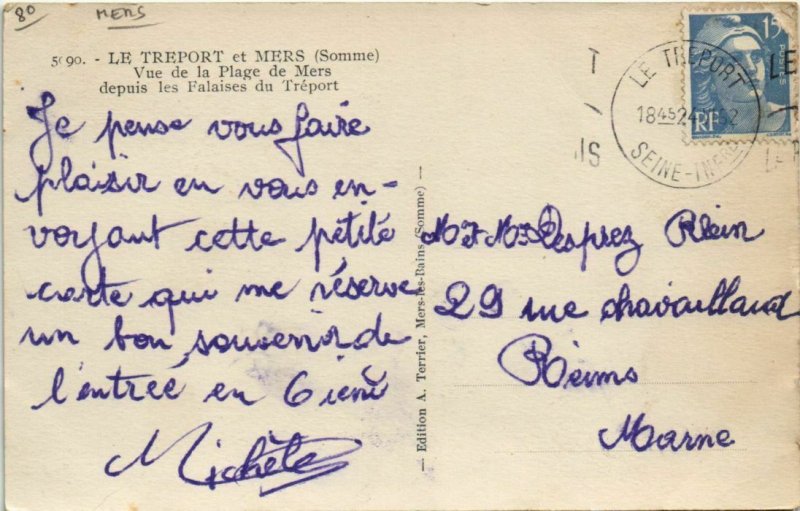 80 MERS
5090. - LE TREPORT et MERS (Somme)
Vue de la Plage de Mers
depuis les Falaises du Tréport
Je pense vous faire
plaisir en vous en-
voyant cette petite
carte qui me réserve
un bon souvenir de
l'entrée en 6ième
Michèle
— Edition A. Terrier, Mers-les-Bains (Somme) —
LE TREPORT
1845 24
SEINE-INFRE
15F
POSTES
RF
Mr et Mme Desprez Klein
29 rue chavaillaud
Reims
Marne